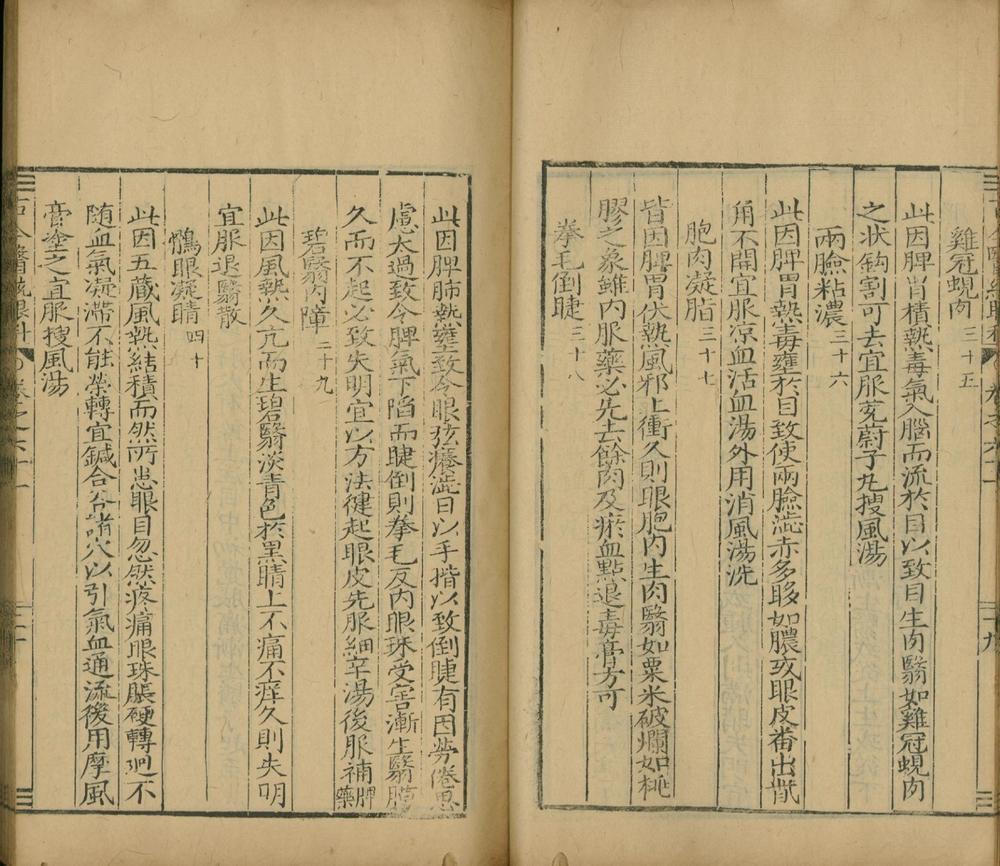 雞冠蜆肉三十五
此因脾胃積熱毒氣入腦而流於目以致目生肉翳如雞冠蜆肉
之狀鈎割可去宜服茺蔚子丸搜風湯
兩臉粘濃三十六
此因脾胃熱毒壅於目致使兩臉澁赤多眵如膿或眼皮番出眥
角不開宜服凉血活血湯外用消風湯洗
胞肉凝脂三十七
皆因脾胃伏熱風邪上衝久則眼胞內生肉翳如粟米破爛如桃
膠之象雖內服藥必先去餘肉及瘀血點退毒膏方可
拳毛倒睫三十八
此因脾肺熱壅致令眼弦癢澁日以手揩以致倒睫有因勞倦思
慮太過致令脾氣下陷而睫倒則拳毛反內眼珠受害漸生翳膜
久而不起必致失明宜以方法徤起眼皮先服細辛湯後服補脾藥
碧翳內障三十九
此因風熱久亢而生碧翳淡青色於黑睛上不痛不癢久則失明
宜服退翳散
鶻眼凝睛四十
此因五藏風熱結積而然所患眼目忽然疼痛眼珠脹硬轉廻不
隨血氣凝滯不能榮轉宜鍼合谷諸穴以引氣血通流後用摩風
膏塗之宜服搜風湯